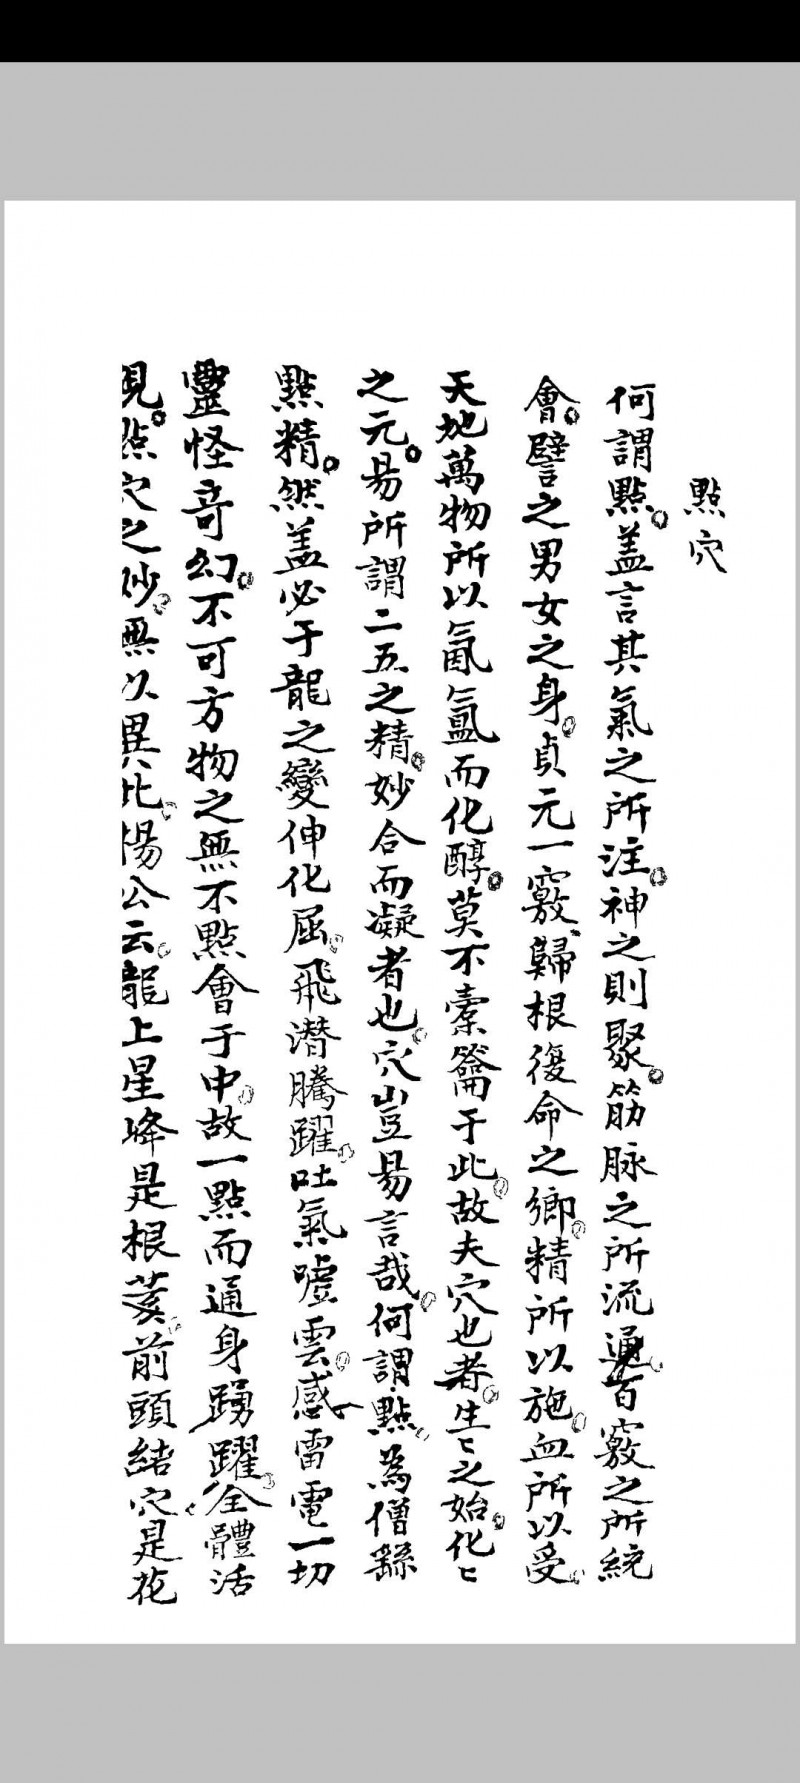 點穴
何謂點盖言其氣之所注神之則聚筋脉之所流通百竅之所統
會譬之男女之身貞元一竅歸根復命之鄉精所以施血所以受
天地萬物所以氤氳而化醇莫不橐籥于此故夫穴也者生〻之始化〻
之元易所謂二五之精妙合而凝者也穴豈易言哉何謂點為僧繇
點精然盖必于龍之變伸化屈飛潛騰躍吐氣噓雲感雷電一切
靈怪奇幻不可方物之無不點會于中故一點而通身踴躍全體活
現点穴之妙無以異比楊公云龍上星峰是根荄前頭結穴是花